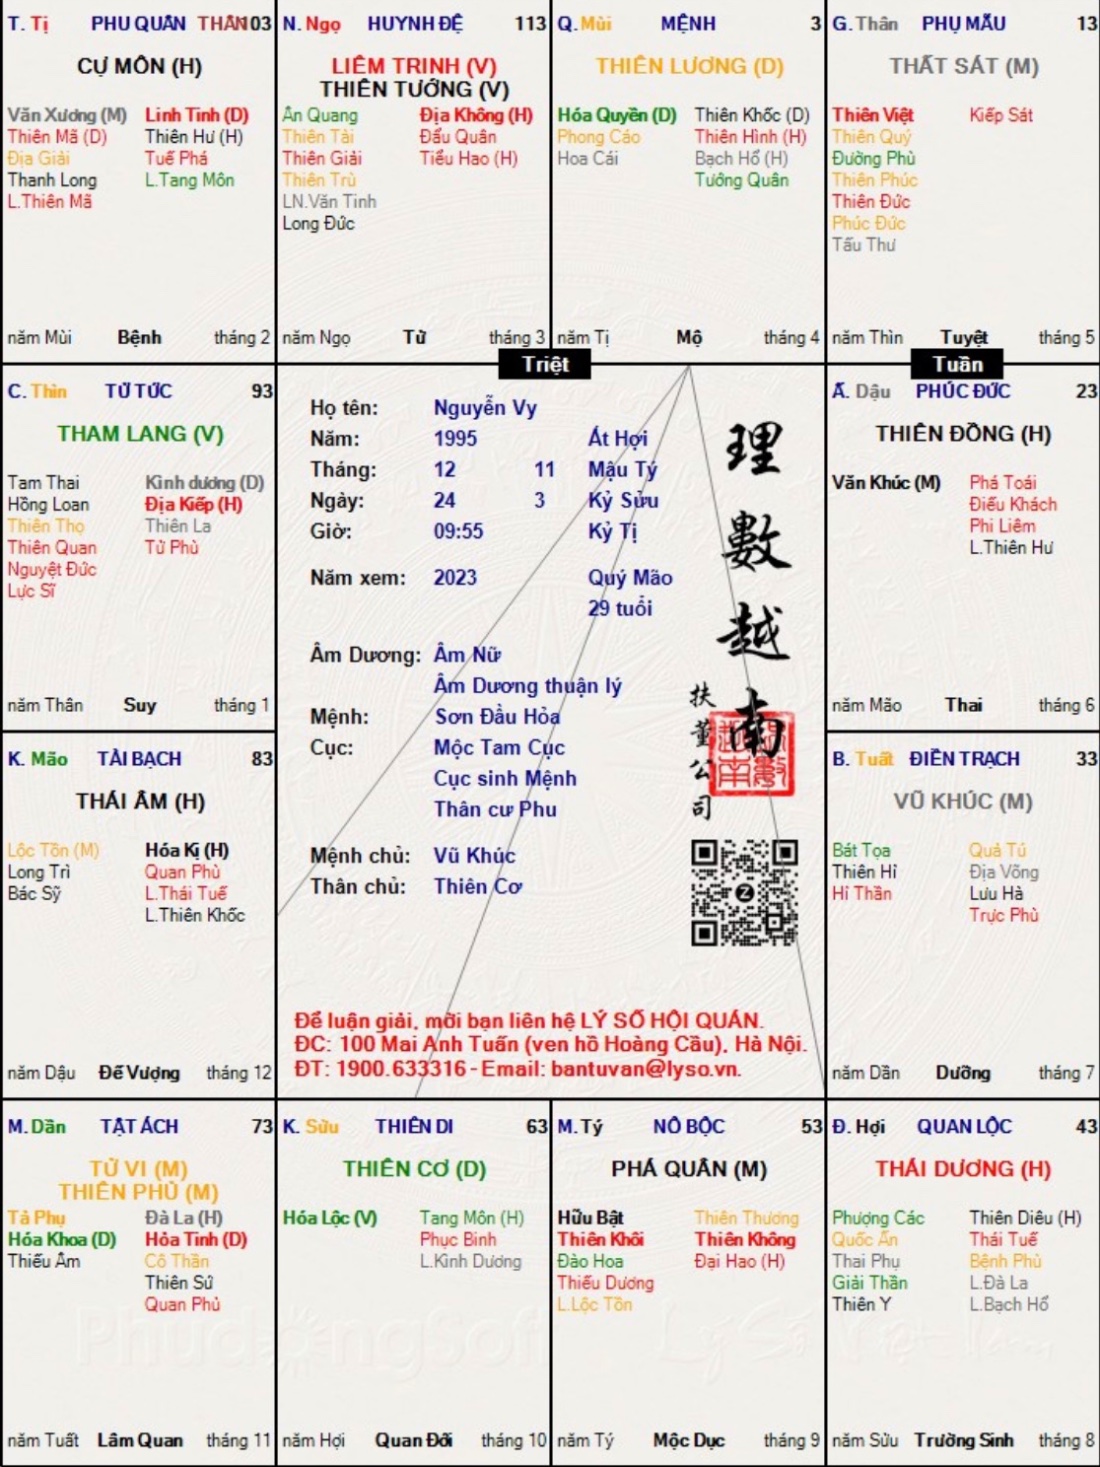 T. Tị PHU QUÂN THÂN 103
CỰ MÔN (H)
Văn Xương (M) Linh Tinh (D)
Thiên Mã (D) Thiên Hư (H)
Địa Giải Tuế Phá
Thanh Long L.Tang Môn
L.Thiên Mã
năm Mùi Bệnh tháng 2
N. Ngọ HUYNH ĐỆ 113
LIÊM TRINH (V)
THIÊN TƯỚNG (V)
Ân Quang Địa Không (H)
Thiên Tài Đẩu Quân
Thiên Giải Tiểu Hao (H)
Thiên Trù
LN.Văn Tinh
Long Đức
năm Ngọ Tử tháng 3
Q. Mùi MỆNH 3
THIÊN LƯƠNG (D)
Hóa Quyền (D) Thiên Khốc (D)
Phong Cáo Thiên Hình (H)
Hoa Cái Bạch Hổ (H)
Tướng Quân
năm Tị Mộ tháng 4
G. Thân PHỤ MẪU 13
THẤT SÁT (M)
Thiên Việt Kiếp Sát
Thiên Quý
Đường Phù
Thiên Phúc
Thiên Đức
Phúc Đức
Tấu Thư
năm Thìn Tuyệt tháng 5
Triệt
Tuần
C. Thìn TỬ TỨC 93
THAM LANG (V)
Tam Thai Kình dương (D)
Hồng Loan Địa Kiếp (H)
Thiên Thọ Thiên La
Thiên Quan Tử Phù
Nguyệt Đức
Lực Sĩ
năm Thân Suy tháng 1
Họ tên: Nguyễn Vy
Năm: 1995 Ất Hợi
Tháng: 12 11 Mậu Tý
Ngày: 24 3 Kỷ Sửu
Giờ: 09:55 Kỷ Tị
Năm xem: 2023 Quý Mão
29 tuổi
Âm Dương: Âm Nữ
Âm Dương thuận lý
Mệnh: Sơn Đầu Hỏa
Cục: Mộc Tam Cục
Cục sinh Mệnh
Thân cư Phu
Mệnh chủ: Vũ Khúc
Thân chủ: Thiên Cơ
理數越南
扶董公司
Để luận giải, mời bạn liên hệ LÝ SỐ HỘI QUÁN.
ĐC: 100 Mai Anh Tuấn (ven hồ Hoàng Cầu), Hà Nội.
ĐT: 1900.633316 - Email: bantuvan@lyso.vn.
Ấ. Dậu PHÚC ĐỨC 23
THIÊN ĐỒNG (H)
Văn Khúc (M) Phá Toái
Điếu Khách
Phi Liêm
L.Thiên Hư
năm Mão Thai tháng 6
K. Mão TÀI BẠCH 83
THÁI ÂM (H)
Lộc Tồn (M) Hóa Kị (H)
Long Trì Quan Phù
Bác Sỹ L.Thái Tuế
L.Thiên Khốc
năm Dậu Đế Vượng tháng 12
B. Tuất ĐIỀN TRẠCH 33
VŨ KHÚC (M)
Bát Tọa Quả Tú
Thiên Hỉ Địa Võng
Hỉ Thần Lưu Hà
Trực Phù
năm Dần Dưỡng tháng 7
M. Dần TẬT ÁCH 73
TỬ VI (M)
THIÊN PHỦ (M)
Tả Phụ Đà La (H)
Hóa Khoa (D) Hỏa Tinh (D)
Thiếu Âm Cô Thần
Thiên Sứ
Quan Phủ
năm Tuất Lâm Quan tháng 11
K. Sửu THIÊN DI 63
THIÊN CƠ (D)
Hóa Lộc (V) Tang Môn (H)
Phục Binh
L.Kình Dương
năm Hợi Quan Đới tháng 10
M. Tý NÔ BỘC 53
PHÁ QUÂN (M)
Hữu Bật Thiên Thương
Thiên Khôi Thiên Không
Đào Hoa Đại Hao (H)
Thiếu Dương
L.Lộc Tồn
năm Tý Mộc Dục tháng 9
Đ. Hợi QUAN LỘC 43
THÁI DƯƠNG (H)
Phượng Các Thiên Diêu (H)
Quốc Ấn Thái Tuế
Thai Phụ Bệnh Phù
Giải Thần L.Đà La
Thiên Y L.Bạch Hổ
năm Sửu Trường Sinh tháng 8